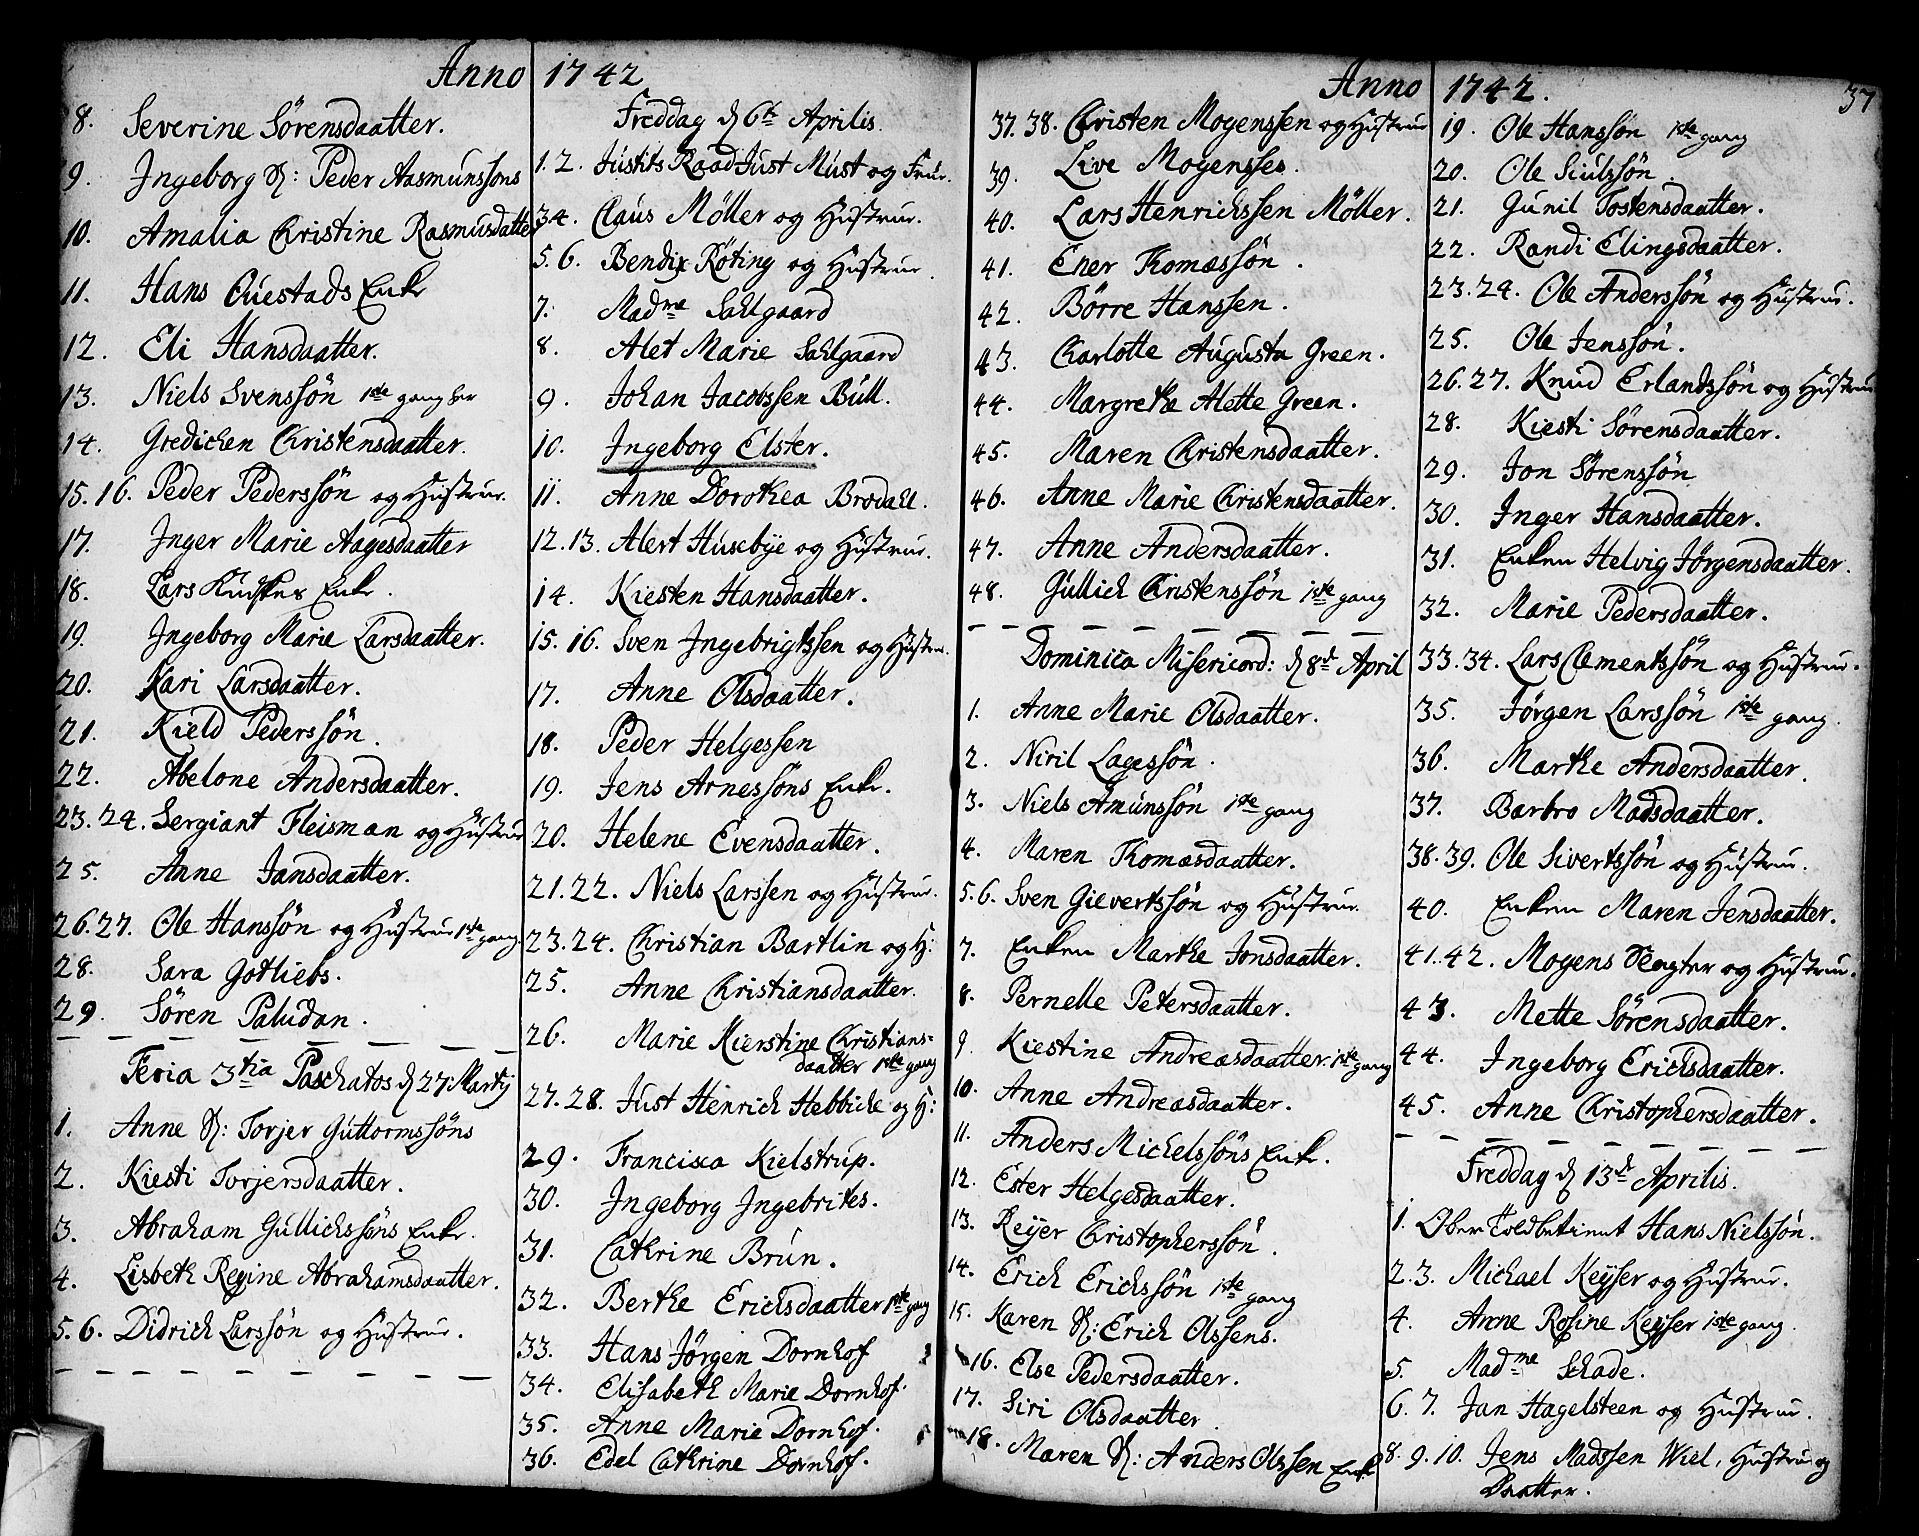 Anno 1742
8. Severine Sörensdaatter.
9. Ingeborg S: Peder Aasmunssöns
10. Amalia Christine Rasmusdatter
11. Hans Questads Enke
12. Eli Hansdaatter.
13. Niels Svenssön 1ste gang her
14. Gredichen Christensdaatter.
15. 16. Peder Pederssön og Hustrue.
17. Inger Marie Aagesdaatter
18. Lars Enke.
19. Ingeborg Marie Larsdaatter.
20. Kari Larsdaatter.
21. Kield Pederssön.
22. Abelone Andersdaatter.
23. 24. Sergiant Fleisman og Hustrue
25. Anne Jansdaatter.
26. 27. Ole Hanssön og Hustrue 1ste gang
28. Sara Gotliebs.
29. Sören Paludan.
Feria 3tia Paschatos d 27. Martij
1. Anne S: Torjer Guttormssöns
2. Kiesti Torjersdaatter.
3. Abraham Gullichssöns Enke.
4. Lisbeth Regine Abrahamsdaatter.
5. 6. Didrich Larssön og Hustrue.
Freddag d 6te Aprilis.
1. 2. Justits Raad Just Must og Frue.
3. 4. Claus Möller og Hustrue.
5. 6. Bendix Röting og Hustrue.
7. Madme Sahlgaard
8. Alet Marie Sahlgaard
9. Johan Jacobssen Bull.
10. Ingeborg Elster.
11. Anne Dorothea Brodahl.
12. 13. Alert Husebye og Hustrue.
14. Kiesten Hansdaatter.
15. 16. Sven Ingebrigtssen og Hustrue.
17. Anne Olsdaatter.
18. Peder Helgessen
19. Jens Arnessöns Enke.
20. Helene Evensdaatter.
21. 22. Niels Larssen og Hustrue.
23. 24. Christian Bartlin og H:
25. Anne Christiansdaatter.
26. Marie Kierstine Christians=
daatter 1ste gang
27. 28. Just Henrich Hebbiche og H:
29. Francisca Kielstrup.
30. Ingeborg Ingebrites.
31. Cathrine Brun.
32. Berthe Erichsdaatter 1ste gang
33. Hans Jörgen Dornhof
34. Elisabeth Marie Dornhof.
35. Anne Marie Dornhof.
36. Edel Cathrine Dornhof.
Anno 1742.
37
37. 38. Christen Mogenssen og Hustrue
39. Live Mogensses.
40. Lars Henrichssen Möller.
41. Ener Thomæssön.
42. Börre Hanssen.
43. Charlotte Augusta Green.
44. Margrethe Alette Green.
45. Maren Christensdaatter.
46. Anne Marie Christensdaatter.
47. Anne Andersdaatter.
48. Gullich Christenssön 1ste gang
Dominica Misericord: d 8de April
1. Anne Marie Olsdaatter.
2. Niril Lagessön.
3. Niels Amunssön 1ste gang
4. Maren Thomæsdaatter.
5. 6. Sven Gievertssön og Hustrue.
7. Enken Marthe Jonsdaatter.
8. Pernelle Petersdaatter.
9. Kiestine Andreasdaatter. 1ste gang
10. Anne Andreasdaatter.
11. Anders Michelssöns Enke.
12. Ester Helgesdaatter.
13. Reyer Christopherssön.
14. Erich Erichssön 1ste gang
15. Karen S: Erich Olssens.
16. Else Pedersdaatter.
17. Siri Olsdaatter.
18. Maren S: Anders Olssen Enke
19. Ole Hanssön 1ste gang
20. Ole Siulssön.
21. Gunil Tostensdaatter.
22. Randi Elingsdaatter.
23. 24. Ole Anderssön og Hustrue.
25. Ole Jenssön.
26. 27. Knud Erlandssön og Hustrue
28. Kiesti Sörensdaatter.
29. Jon Sörenssön
30. Inger Hansdaatter.
31. Enken Helvig Jörgensdaatter.
32. Marie Pedersdaatter.
33. 34. Lars Clementssön og Hustrue.
35. Jörgen Larssön 1ste gang.
36. Marthe Andersdaatter.
37. Barbro Madsdaatter.
38. 39. Ole Sivertssön og Hustrue.
40. Enken Maren Jensdaatter.
41. 42. Mogens Vegter og Hustrue.
43. Mette Sörensdaatter.
44. Ingeborg Erichsdaatter.
45. Anne Christophersdaatter.
Freddag d 13de Aprilis.
1. Ober Toldbetient Hans Nielssön.
2. 3. Michael Keyser og Hustrue.
4. Anne Rosine Keyser 1ste gang.
5. Madme Schade.
6. 7. Jan Hagelsteen og Hustrue.
8. 9. 10. Jens Madssen Wiel, Hustrue og
Daatter.